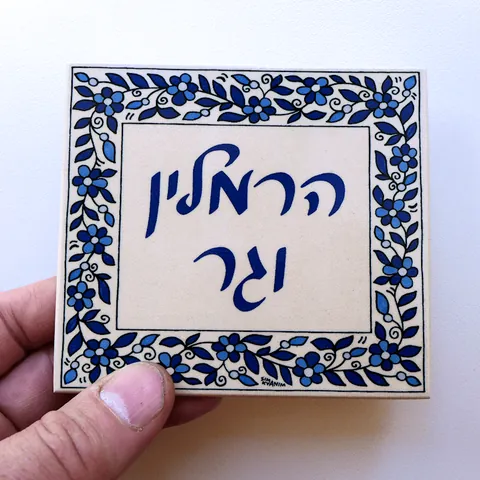 הרמלין
וגר